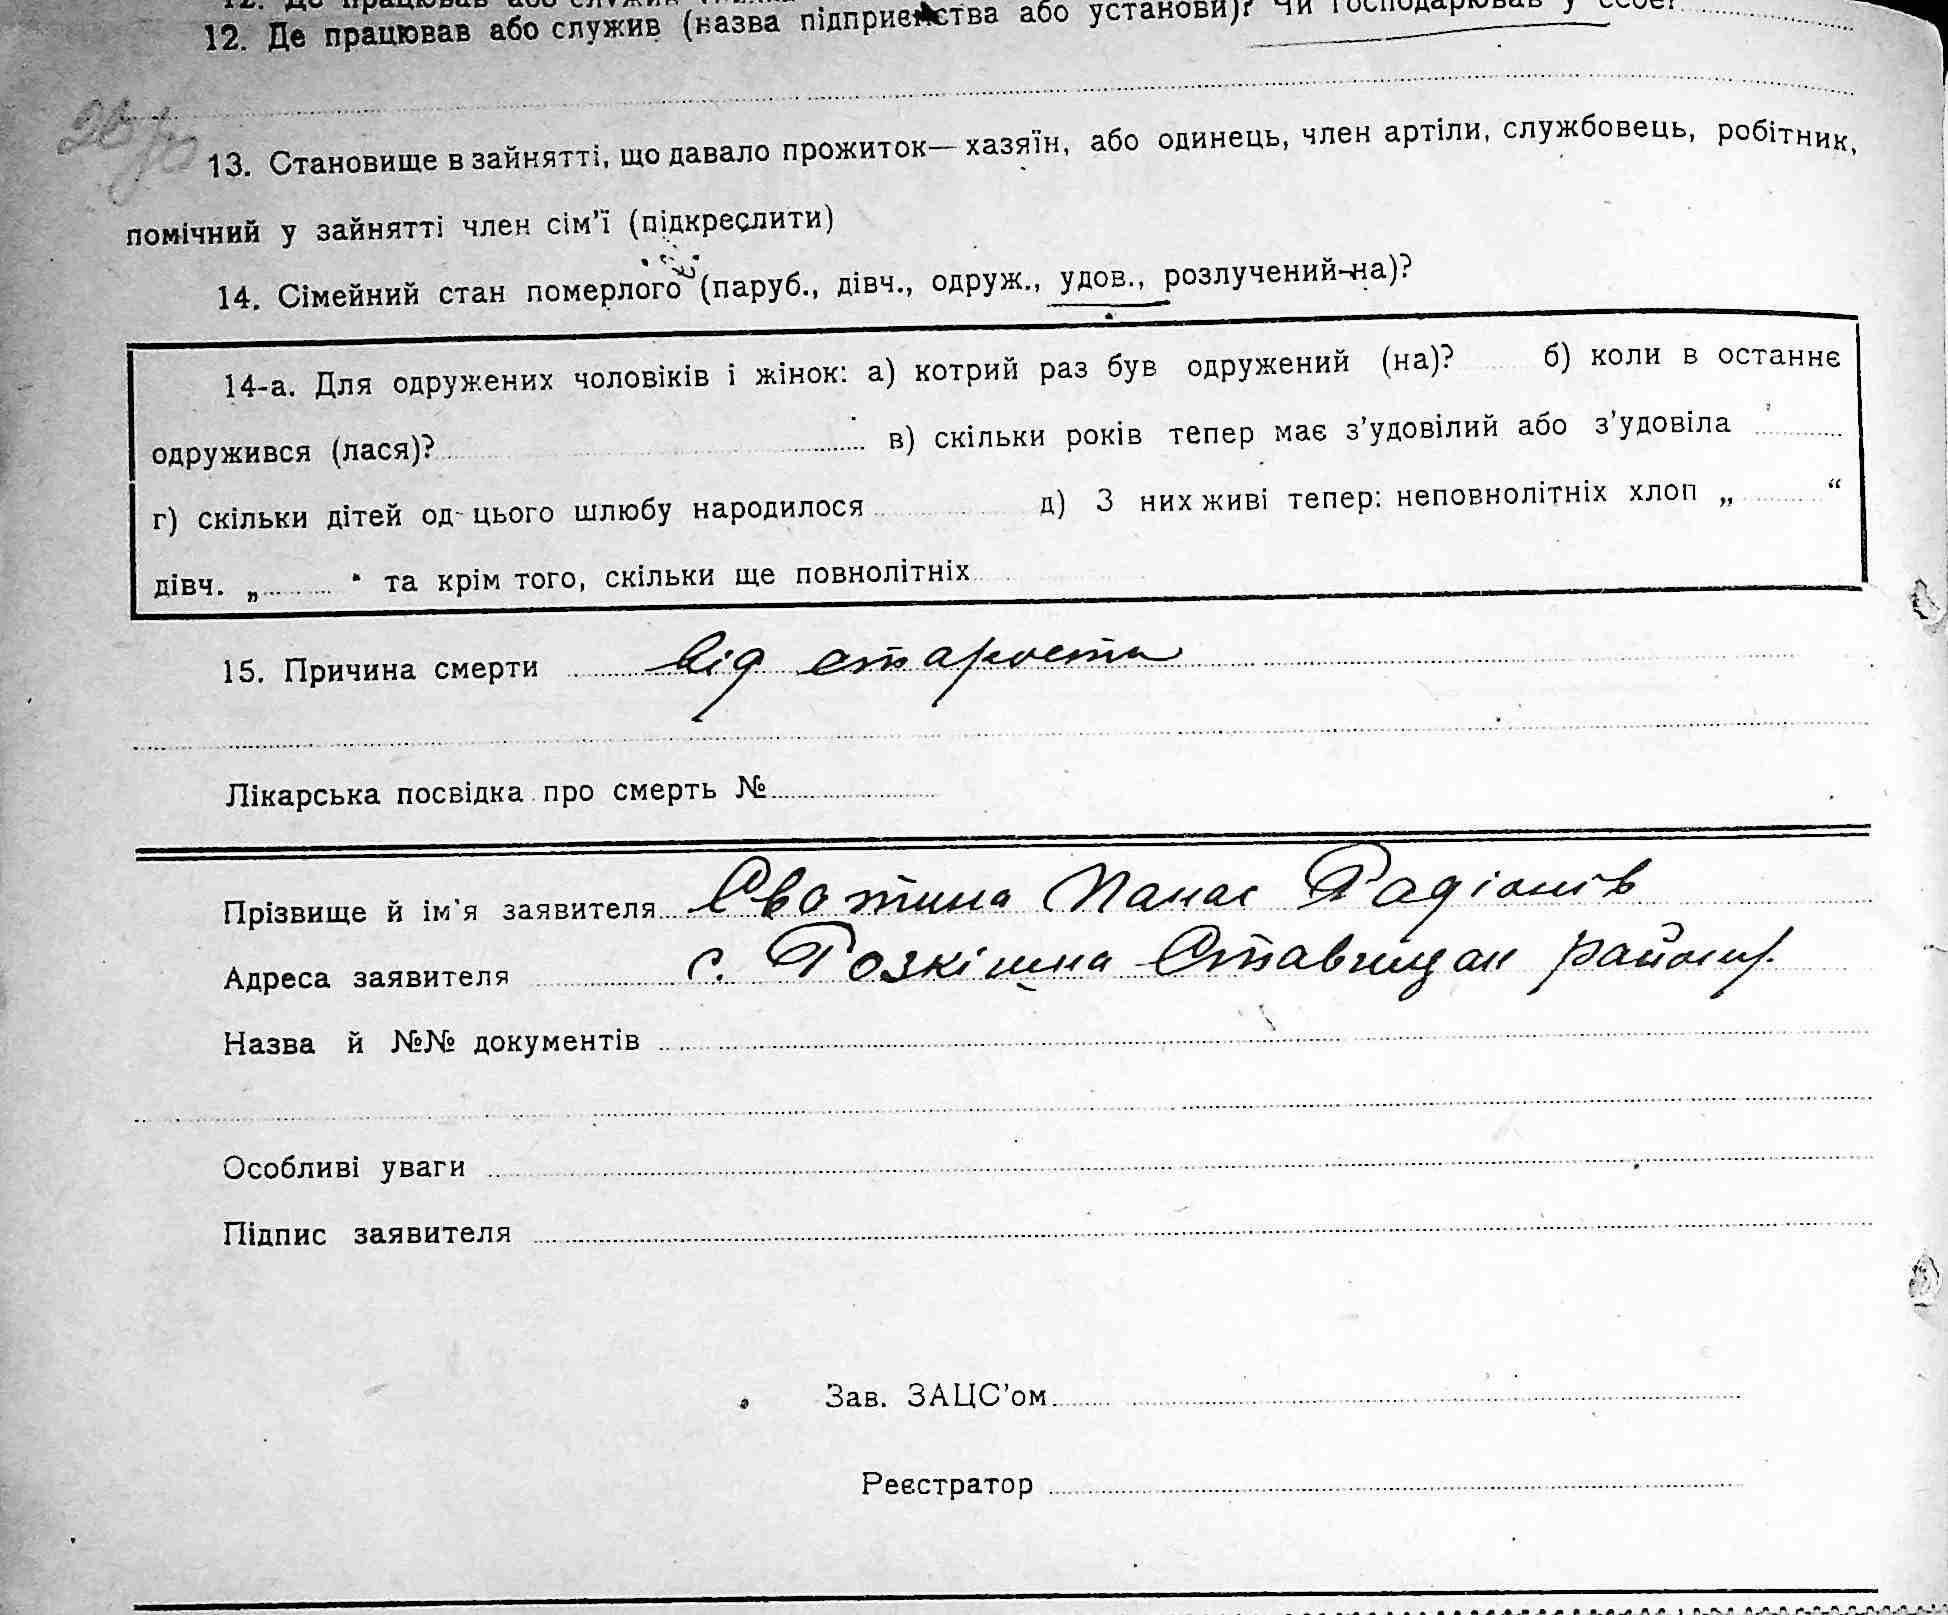 12. Де працював або служив (назва підприємства або установи)? Чи господарював у себе?
13. Становище в зайнятті, що давало прожиток — хазяїн, або одинець, член артіли, службовець, робітник,
помічний у зайнятті член сім'ї (підкреслити)
14. Сімейний стан померлого (паруб., дівч., одруж., удов., розлучений-на)?
14-а. Для одружених чоловіків і жінок: а) котрий раз був одружений (на)? б) коли в останнє
одружився (лася)? в) скільки років тепер має з'удовілий або з'удовіла
г) скільки дітей од цього шлюбу народилося д) З них живі тепер: неповнолітніх хлоп „ “
дівч. „ “ та крім того, скільки ще повнолітніх
15. Причина смерти від старости
Лікарська посвідка про смерть №
Прізвище й ім'я заявителя Сватина Панас Радіонів
Адреса заявителя с. Розкішна Ставищан району
Назва й №№ документів
Особливі уваги
Підпис заявителя
Зав. ЗАЦС'ом
Реєстратор